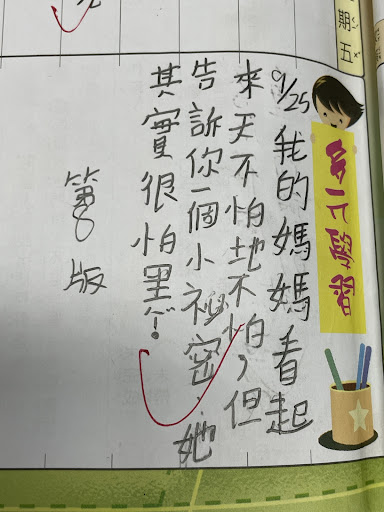 期五
多元學習
9/25我的媽媽看起
來天不怕地不怕，但
告訴你一個小祕密，她
其實很怕黑！
第8版